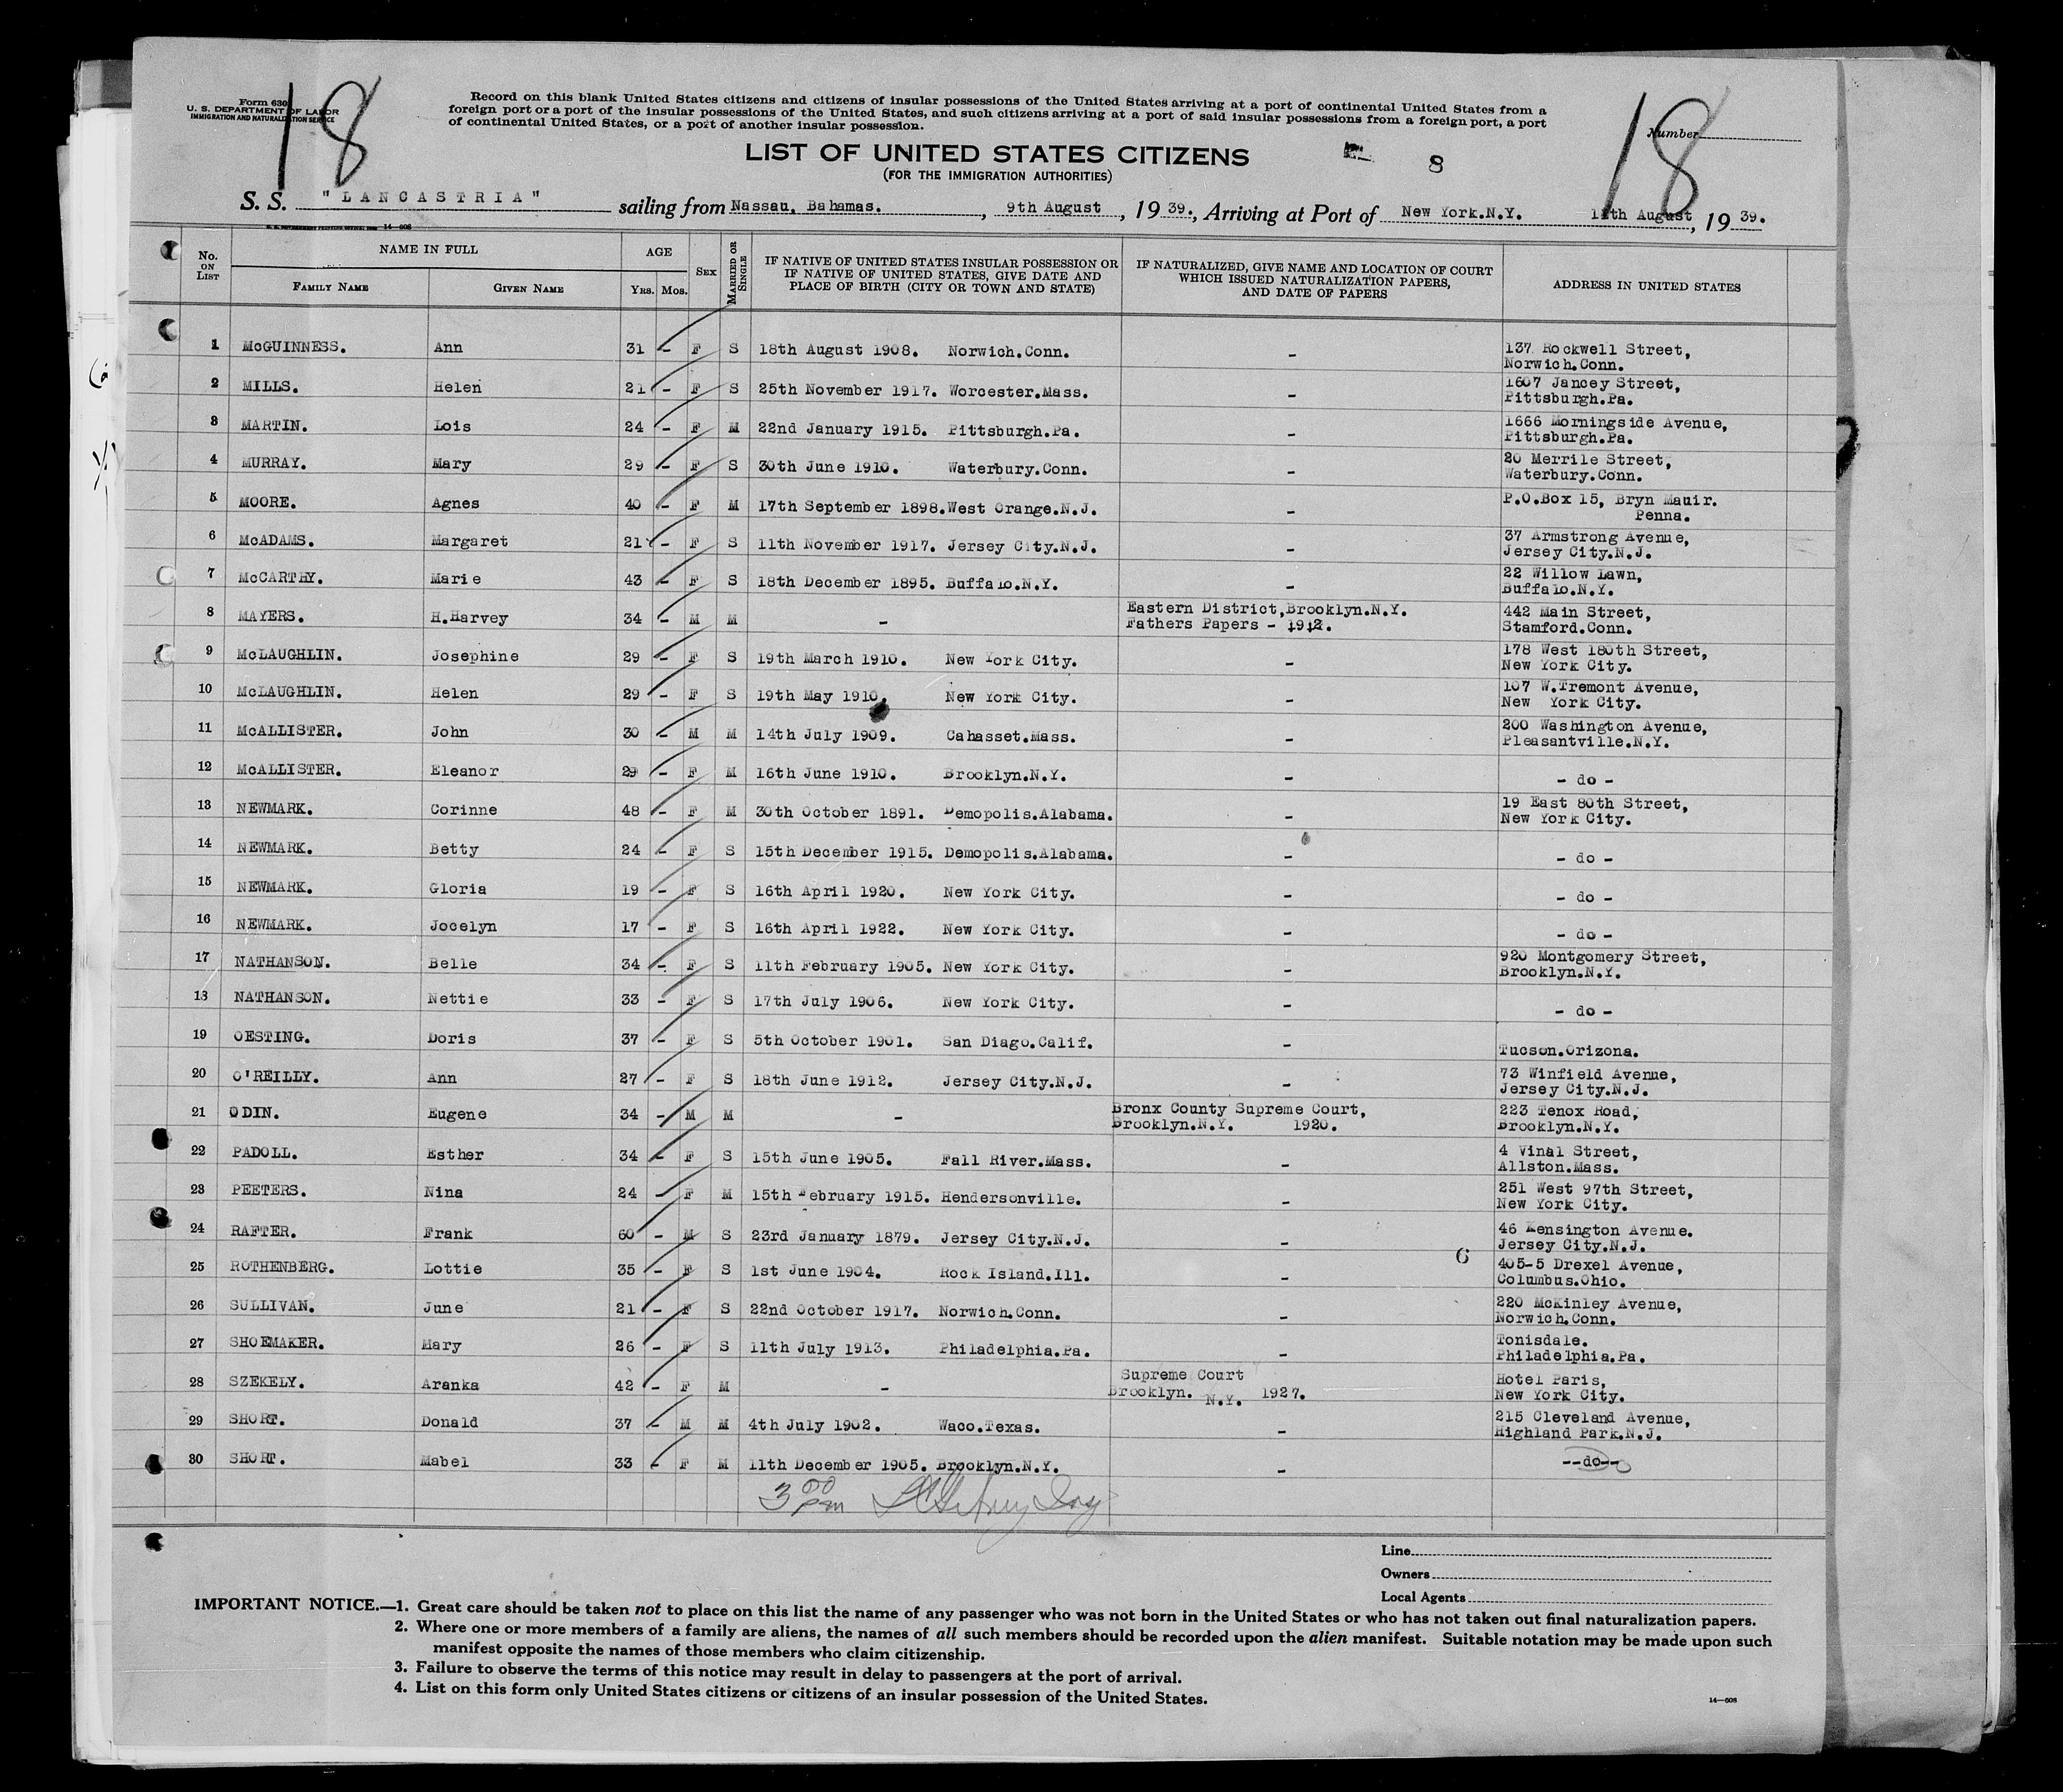 18
18
Form 630
U. S. DEPARTMENT OF LABOR
IMMIGRATION AND NATURALIZATION SERVICE
Record on this blank United States citizens and citizens of insular possessions of the United States arriving at a port of continental United States from a
foreign port or a port of the insular possessions of the United States, and such citizens arriving at a port of said insular possessions from a foreign port, a port
of continental United States, or a port of another insular possession.
Number
LIST OF UNITED STATES CITIZENS
8
(FOR THE IMMIGRATION AUTHORITIES)
S. S. "LANCASTRIA" sailing from Nassau, Bahamas. , 9th August , 19 39., Arriving at Port of New York.N.Y. August, 19 39.
14-608
No. ON LIST
NAME IN FULL
FAMILY NAME
GIVEN NAME
AGE
YRS. MOS.
SEX
MARRIED OR SINGLE
IF NATIVE OF UNITED STATES INSULAR POSSESSION OR
IF NATIVE OF UNITED STATES, GIVE DATE AND
PLACE OF BIRTH (CITY OR TOWN AND STATE)
IF NATURALIZED, GIVE NAME AND LOCATION OF COURT
WHICH ISSUED NATURALIZATION PAPERS,
AND DATE OF PAPERS
ADDRESS IN UNITED STATES
1 McGUINNESS. Ann 31 - F S 18th August 1908. Norwich.Conn. - 137 Rockwell Street,
Norwich.Conn.
2 MILLS. Helen 21 - F S 25th November 1917. Worcester.Mass. - 1607 Jancey Street,
Pittsburgh.Pa.
3 MARTIN. Lois 24 - F M 22nd January 1915. Pittsburgh.Pa. - 1666 Morningside Avenue,
Pittsburgh.Pa.
4 MURRAY. Mary 29 - F S 30th June 1910. Waterbury.Conn. - 20 Merrile Street,
Waterbury.Conn.
5 MOORE. Agnes 40 - F M 17th September 1898.West Orange.N.J. - P.O.Box 15, Bryn Mauir.
Penna.
6 McADAMS. Margaret 21 - F S 11th November 1917. Jersey City.N.J. - 37 Armstrong Avenue,
Jersey City.N.J.
7 McCARTHY. Marie 43 - F S 18th December 1895. Buffalo.N.Y. - 22 Willow Lawn,
Buffalo.N.Y.
8 MAYERS. H.Harvey 34 - M M - Eastern District,Brooklyn.N.Y. 442 Main Street,
Fathers Papers - 1912. Stamford.Conn.
9 McLAUGHLIN. Josephine 29 - F S 19th March 1910. New York City. - 178 West 180th Street,
New York City.
10 McLAUGHLIN. Helen 29 - F S 19th May 1910. New York City. - 107 W.Tremont Avenue,
New York City.
11 McALLISTER. John 30 - M M 14th July 1909. Cahasset.Mass. - 200 Washington Avenue,
Pleasantville.N.Y.
12 McALLISTER. Eleanor 29 - F M 16th June 1910. Brooklyn.N.Y. - - do -
13 NEWMARK. Corinne 48 - F M 30th October 1891. Demopolis.Alabama. - 19 East 80th Street,
New York City.
14 NEWMARK. Betty 24 - F S 15th December 1915. Demopolis.Alabama. - - do -
15 NEWMARK. Gloria 19 - F S 16th April 1920. New York City. - - do -
16 NEWMARK. Jocelyn 17 - F S 16th April 1922. New York City. - - do -
17 NATHANSON. Belle 34 - F S 11th February 1905. New York City. - 920 Montgomery Street,
Brooklyn.N.Y.
18 NATHANSON. Nettie 33 - F S 17th July 1906. New York City. - - do -
19 OESTING. Doris 37 - F S 5th October 1901. San Diago.Calif. - Tucson.Orizona.
20 O'REILLY. Ann 27 - F S 18th June 1912. Jersey City.N.J. - 73 Winfield Avenue,
Jersey City.N.J.
21 ODIN. Eugene 34 - M M - Bronx County Supreme Court, 223 Tenox Road,
Brooklyn.N.Y. 1920. Brooklyn.N.Y.
22 PADOLL. Esther 34 - F S 15th June 1905. Fall River.Mass. - 4 Vinal Street,
Allston.Mass.
23 PEETERS. Nina 24 - F M 15th February 1915. Hendersonville. - 251 West 97th Street,
New York City.
24 RAFTER. Frank 60 - M S 23rd January 1879. Jersey City.N.J. - 46 Kensington Avenue.
Jersey City.N.J.
6
25 ROTHENBERG. Lottie 35 - F S 1st June 1904. Rock Island.Ill. - 405-5 Drexel Avenue,
Columbus.Ohio.
26 SULLIVAN. June 21 - F S 22nd October 1917. Norwich.Conn. - 220 McKinley Avenue,
Norwich.Conn.
27 SHOEMAKER. Mary 26 - F S 11th July 1913. Philadelphia.Pa. - Tonisdale.
Philadelphia.Pa.
28 SZEKELY. Aranka 42 - F M - Supreme Court Hotel Paris,
Brooklyn. N.Y. 1927. New York City.
29 SHORT. Donald 37 - M M 4th July 1902. Waco.Texas. - 215 Cleveland Avenue,
Highland Park.N.J.
30 SHORT. Mabel 33 - F M 11th December 1905. Brooklyn.N.Y. - --do--
3 00 pm
Line
Owners
Local Agents
IMPORTANT NOTICE.—1. Great care should be taken not to place on this list the name of any passenger who was not born in the United States or who has not taken out final naturalization papers.
2. Where one or more members of a family are aliens, the names of all such members should be recorded upon the alien manifest. Suitable notation may be made upon such
manifest opposite the names of those members who claim citizenship.
3. Failure to observe the terms of this notice may result in delay to passengers at the port of arrival.
4. List on this form only United States citizens or citizens of an insular possession of the United States.
14—608